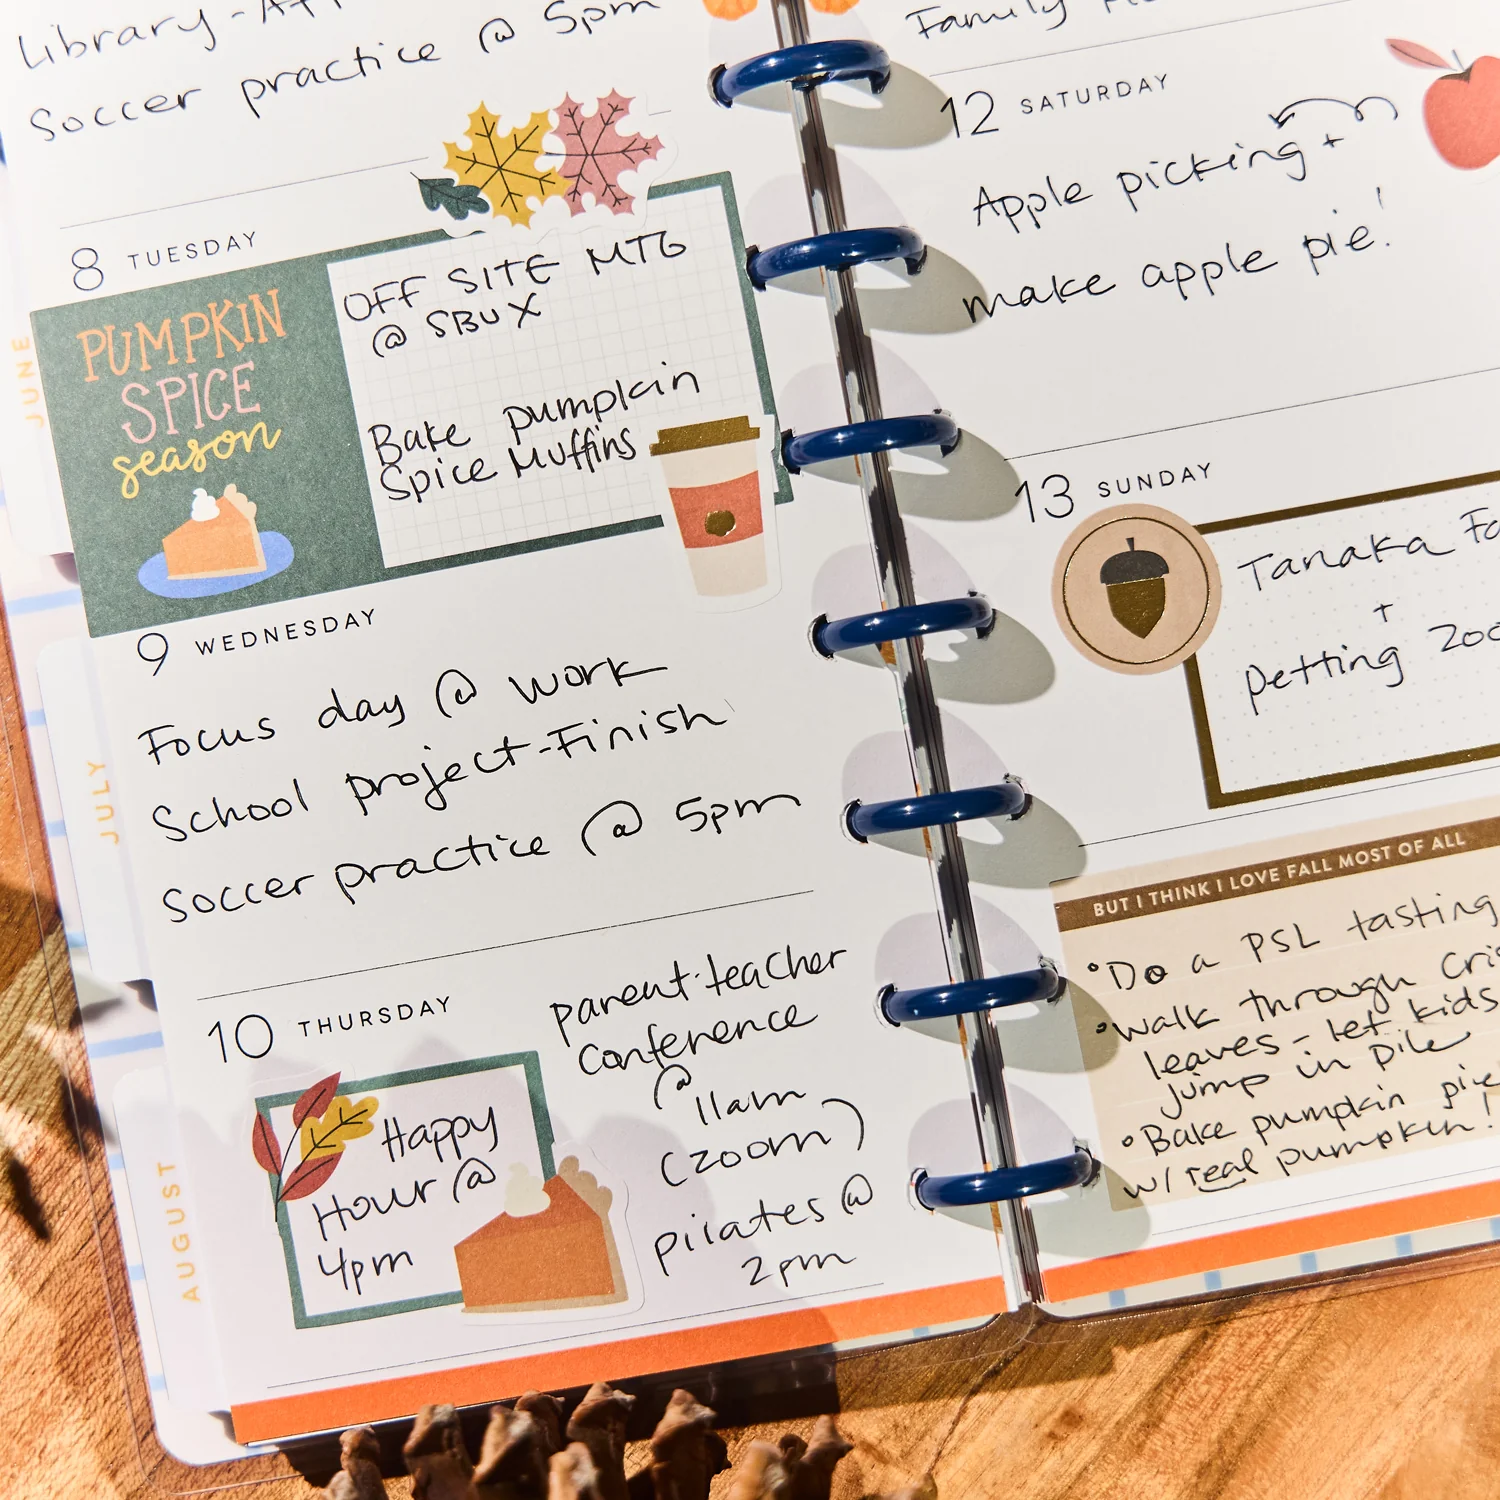 Library -
Soccer practice @ 5pm
8 TUESDAY
PUMPKIN
SPICE
season
OFF SITE MTG
@ SBUX
Bake pumpkin
Spice Muffins
9 WEDNESDAY
Focus day @ work
School project-Finish
Soccer practice @ 5pm
10 THURSDAY
Happy
Hour @
4pm
parent-teacher
Conference
@
11am
(zoom)
pilates @
2pm
JUNE
JULY
AUGUST
Family
12 SATURDAY
Apple picking +
make apple pie!
13 SUNDAY
Tanaka
+
petting zoo
BUT I THINK I LOVE FALL MOST OF ALL
° Do a PSL tasting
° walk through
leaves - let kids
jump in pile
° Bake pumpkin pie
w/ real pumpkin!